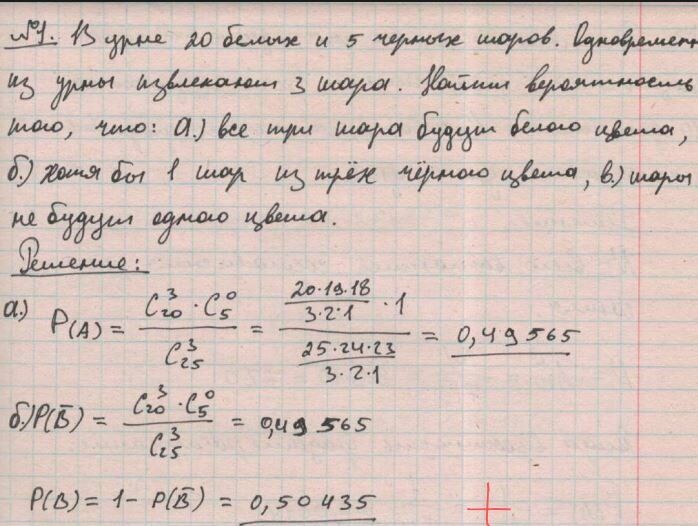 №1. В урне 20 белых и 5 черных шаров. Одновременн
из урны извлекают 3 шара. Найти вероятность
того, что: а.) все три шара будут белого цвета,
б.) хотя бы 1 шар из трёх чёрного цвета, в.) шары
не будут одного цвета.
Решение:
а.) P(A) = C₂₀³·C₅⁰ / C₂₅³ = (20·19·18 / 3·2·1 · 1) / (25·24·23 / 3·2·1) = 0,49565
б.) P(B̅) = C₂₀³·C₅⁰ / C₂₅³ = 0,49565
P(B) = 1 - P(B̅) = 0,50435